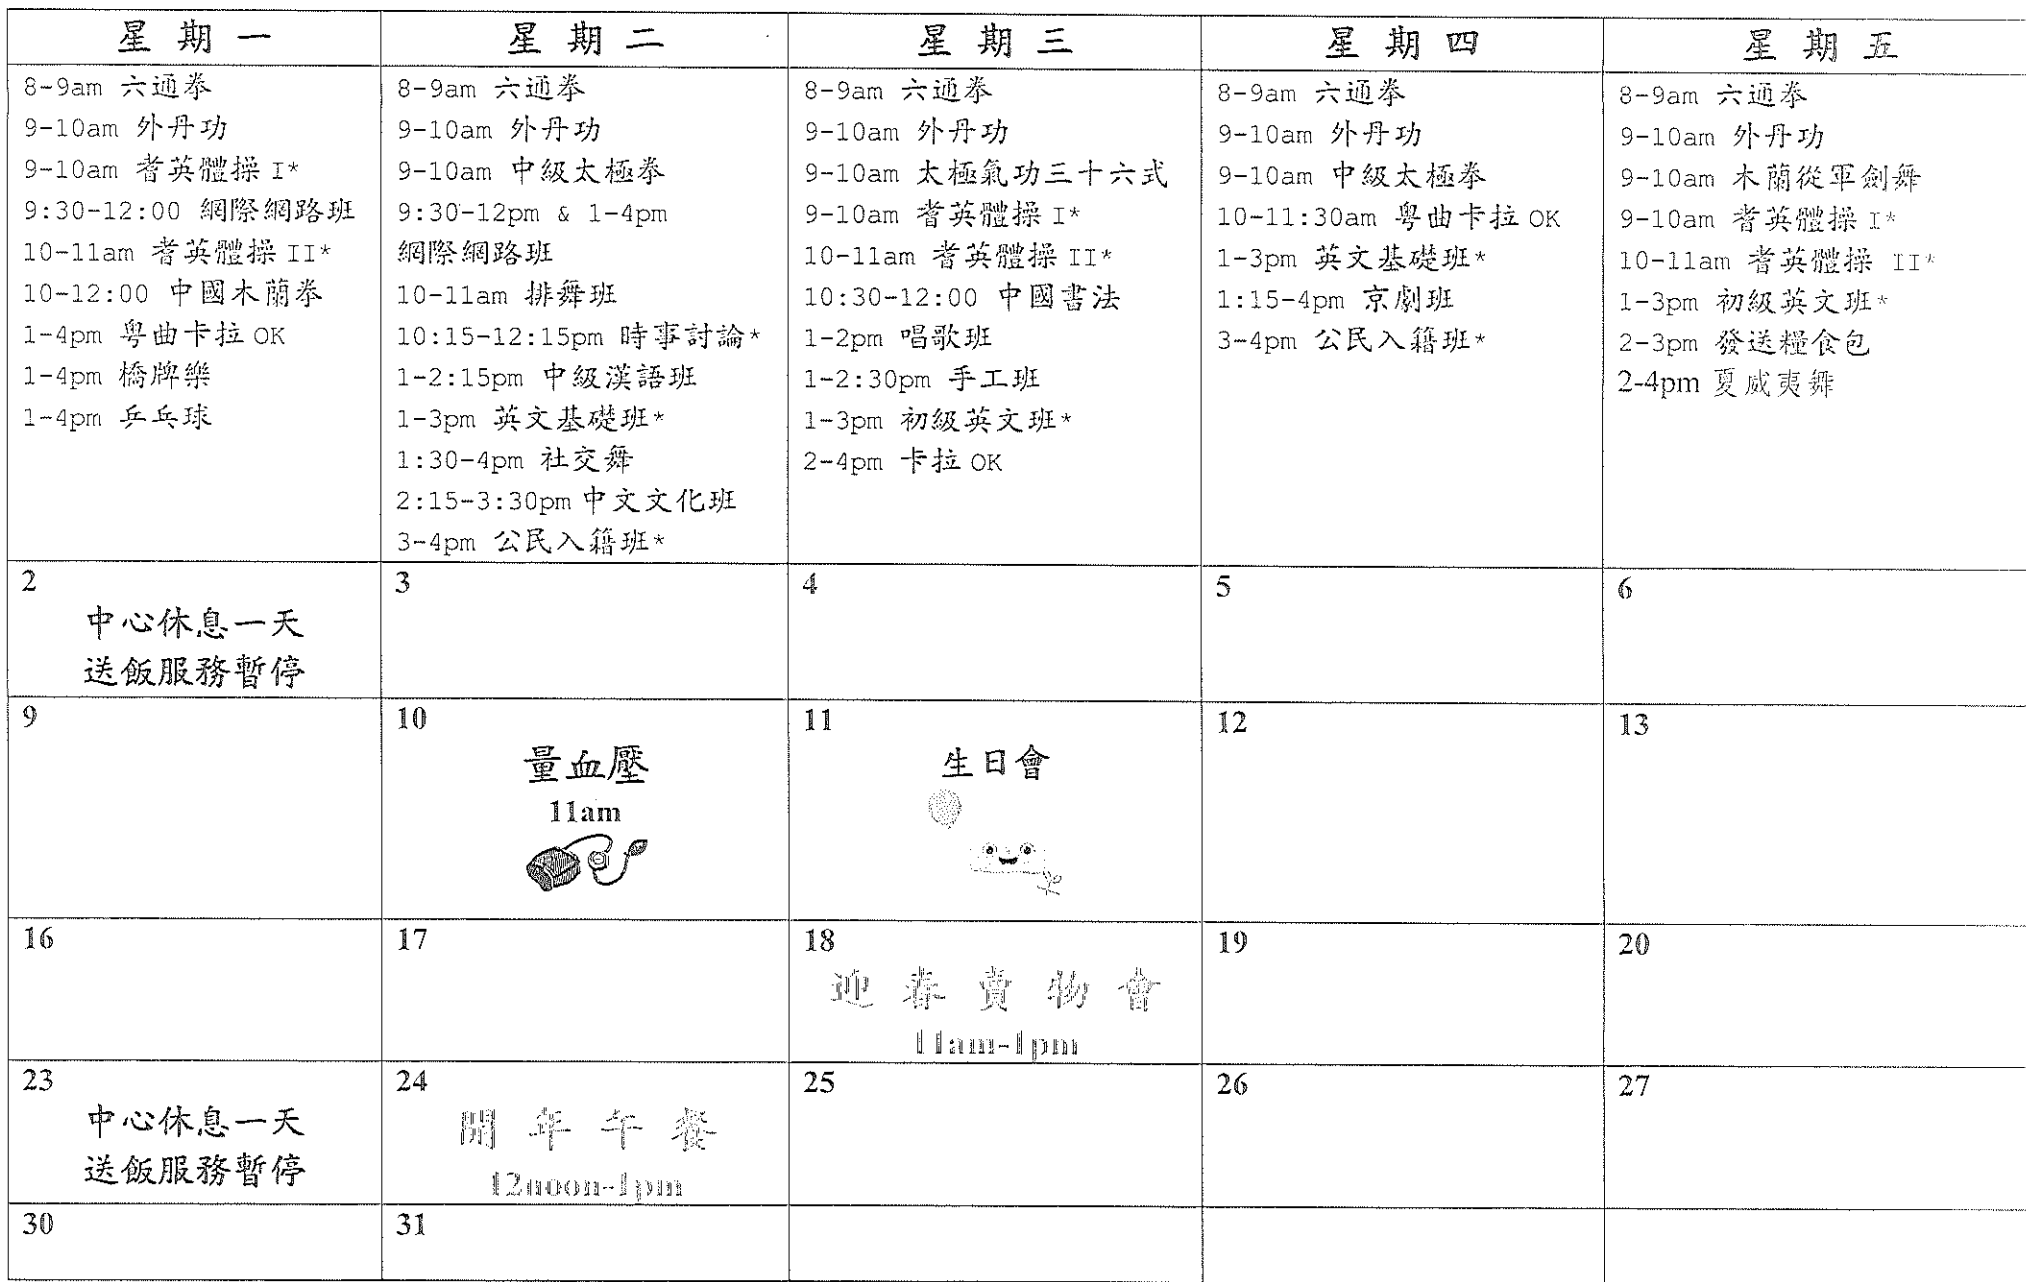 星期一
8-9am 六通拳
9-10am 外丹功
9-10am 耆英體操 I*
9:30-12:00 網際網路班
10-11am 耆英體操 II*
10-12:00 中國木蘭拳
1-4pm 粵曲卡拉 OK
1-4pm 橋牌樂
1-4pm 乒乓球
星期二
8-9am 六通拳
9-10am 外丹功
9-10am 中級太極拳
9:30-12pm & 1-4pm
網際網路班
10-11am 排舞班
10:15-12:15pm 時事討論*
1-2:15pm 中級漢語班
1-3pm 英文基礎班*
1:30-4pm 社交舞
2:15-3:30pm 中文文化班
3-4pm 公民入籍班*
星期三
8-9am 六通拳
9-10am 外丹功
9-10am 太極氣功三十六式
9-10am 耆英體操 I*
10-11am 耆英體操 II*
10:30-12:00 中國書法
1-2pm 唱歌班
1-2:30pm 手工班
1-3pm 初級英文班*
2-4pm 卡拉 OK
星期四
8-9am 六通拳
9-10am 外丹功
9-10am 中級太極拳
10-11:30am 粵曲卡拉 OK
1-3pm 英文基礎班*
1:15-4pm 京劇班
3-4pm 公民入籍班*
星期五
8-9am 六通拳
9-10am 外丹功
9-10am 木蘭從軍劍舞
9-10am 耆英體操 I*
10-11am 耆英體操 II*
1-3pm 初級英文班*
2-3pm 發送糧食包
2-4pm 夏威夷舞
2
中心休息一天
送飯服務暫停
3
4
5
6
9
10
量血壓
11am
11
生日會
12
13
16
17
18
迎春賣物會
11am-1pm
19
20
23
中心休息一天
送飯服務暫停
24
開年午餐
12noon-1pm
25
26
27
30
31